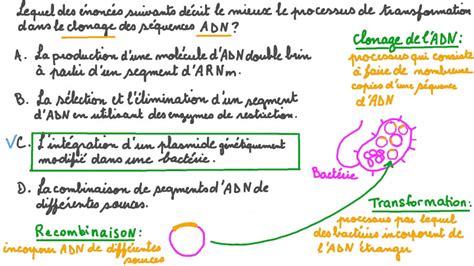 Lequel des énoncés suivants décrit le mieux le processus de transformation
dans le clonage des séquences ADN ?
A. La production d'une molécule d'ADN double brin
à partir d'un segment d'ARNm.
B. La sélection et l'élimination d'un segment
d'ADN en utilisant des enzymes de restriction.
✓C. L'intégration d'un plasmide génétiquement
modifié dans une bactérie.
D. La combinaison de segments d'ADN de
différentes sources.
Recombinaison:
incorporer ADN de différentes
sources
Clonage de l'ADN:
processus qui consiste
à faire de nombreuses
copies d'une séquence
d'ADN
Bactérie
Transformation:
processus par lequel
des bactéries incorporent de
l'ADN étranger